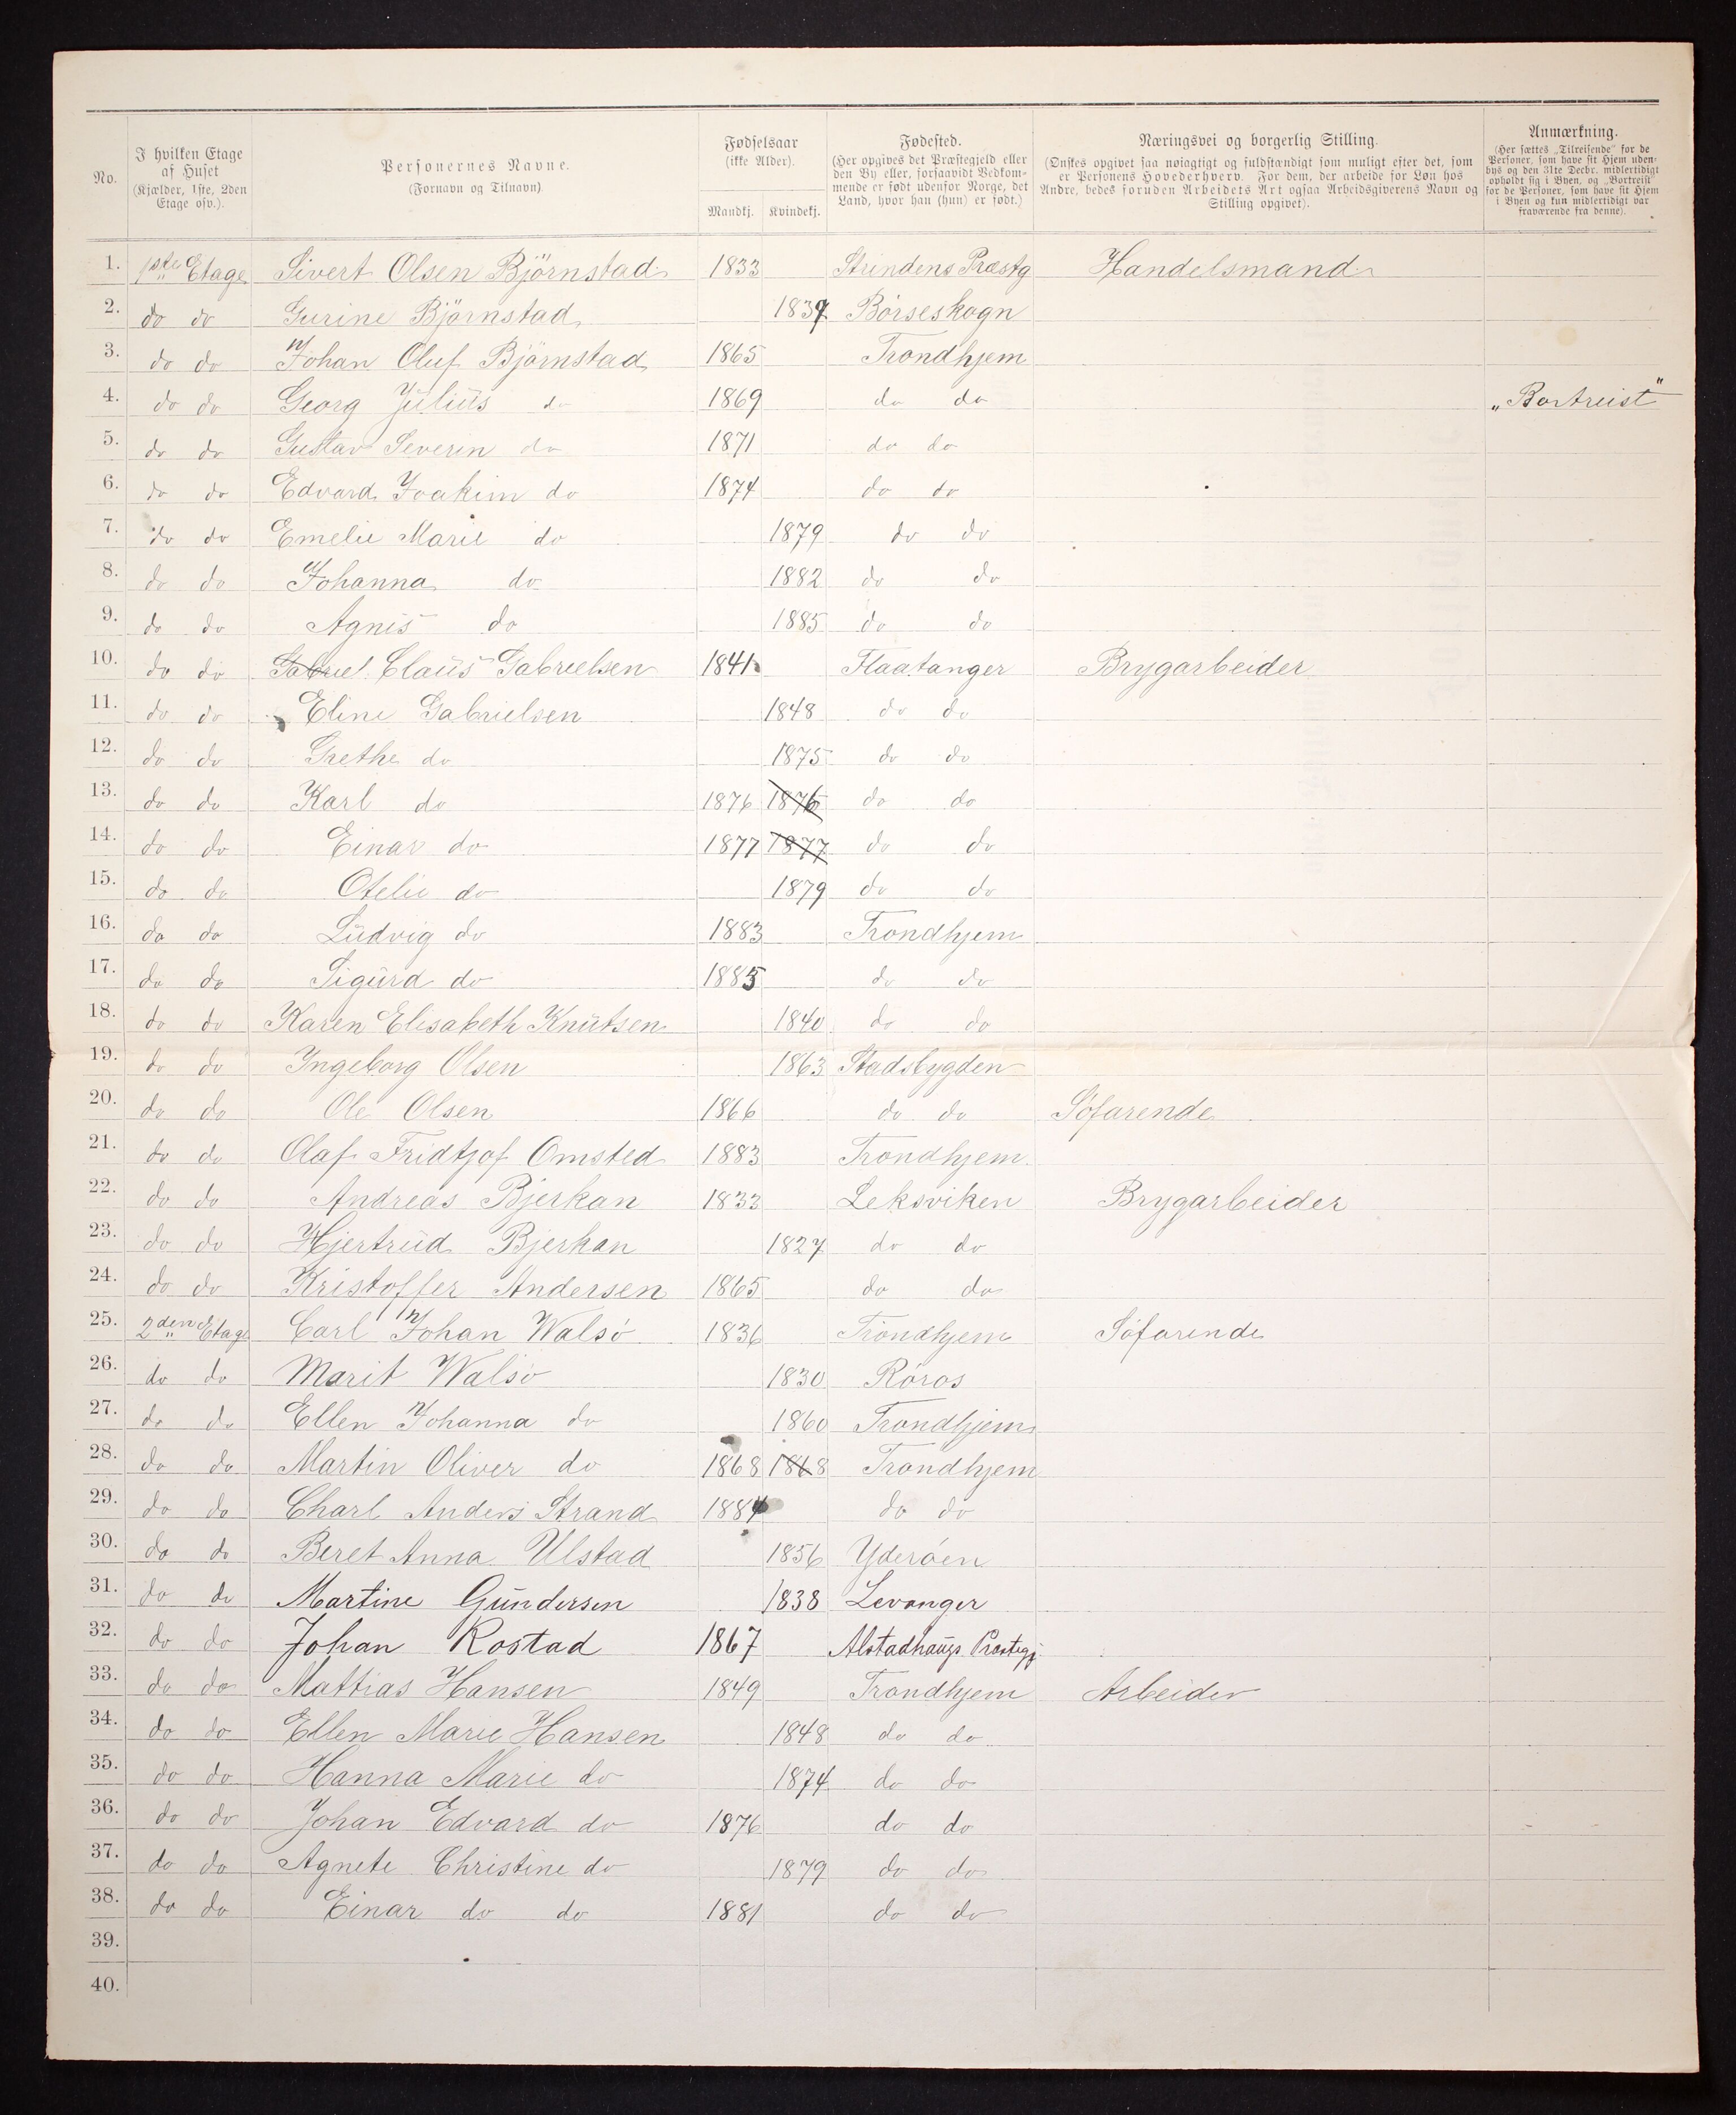 No.
I hvilken Etage af Huset (Kjælder, 1ste, 2den Etage osv.).
Personernes Navne. (Fornavn og Tilnavn).
Fødselsaar (ikke Alder). Mandkj. Kvindekj.
Fødested. (Her opgives det Præstegjeld eller den By eller, forsaavidt Vedkommende er født udenfor Norge, det Land, hvor han (hun) er født.)
Næringsvei og borgerlig Stilling. (Ønskes opgivet saa nøiagtigt og fuldstændigt som muligt efter det, som er Personens Hovederhverv. For dem, der arbeide for Løn hos Andre, bedes foruden Arbeidets Art ogsaa Arbeidsgiverens Navn og Stilling opgivet).
Anmærkning. (Her sættes „Tilreisende“ for de Personer, som have sit Hjem udenbys og den 31te Decbr. midlertidigt opholdt sig i Byen, og „Bortreist“ for de Personer, som have sit Hjem i Byen og kun midlertidigt var fraværende fra denne).
1. 1ste Etage Sivert Olsen Björnstad 1833 Strindens Præstg Handelsmand
2. do do Gurine Björnstad 1837 Börseskogn
3. do do Johan Oluf Björnstad 1865 Trondhjem
4. do do Georg Julius do 1869 do do „Bortreist“
5. do do Gustav Severin do 1871 do do
6. do do Edvard Joakim do 1874 do do
7. do do Emelie Marie do 1879 do do
8. do do Johanna do 1882 do do
9. do do Agnis do 1885 do do
10. do do Gabriel Claus Gabrielsen 1841 Flaatanger Brygarbeider
11. do do Eline Gabrielsen 1848 do do
12. do do Grethe do 1875 do do
13. do do Karl do 1876 1876 do do
14. do do Einar do 1877 1877 do do
15. do do Otelie do 1879 do do
16. do do Ludvig do 1883 Trondhjem
17. do do Sigurd do 1885 do do
18. do do Karen Elisabeth Knutsen 1840 do do
19. do do Ingeborg Olsen 1863 Stadsbygden
20. do do Ole Olsen 1866 do do Söfarende
21. do do Olaf Fridtjof Omsted 1883 Trondhjem
22. do do Andreas Bjerkan 1833 Leksviken Brygarbeider
23. do do Hjertrud Bjerkan 1827 do do
24. do do Kristoffer Andersen 1865 do do
25. 2den Etage Carl Johan Walsö 1836 Trondhjem Söfarende
26. do do Marit Walsö 1830 Röros
27. do do Ellen Johanna do 1860 Trondhjem
28. do do Martin Oliver do 1868 1868 Trondhjem
29. do do Charl Anders Strand 1884 do do
30. do do Beret Anna Ulstad 1856 Yderöen
31. do do Martine Gundersen 1838 Levanger
32. do do Johan Rostad 1867 Alstadhaugs Præstegj.
33. do do Mattias Hansen 1849 Trondhjem Arbeider
34. do do Ellen Marie Hansen 1848 do do
35. do do Hanna Marie do 1874 do do
36. do do Johan Edvard do 1876 do do
37. do do Agnete Christine do 1879 do do
38. do do Einar do do 1881 do do
39.
40.